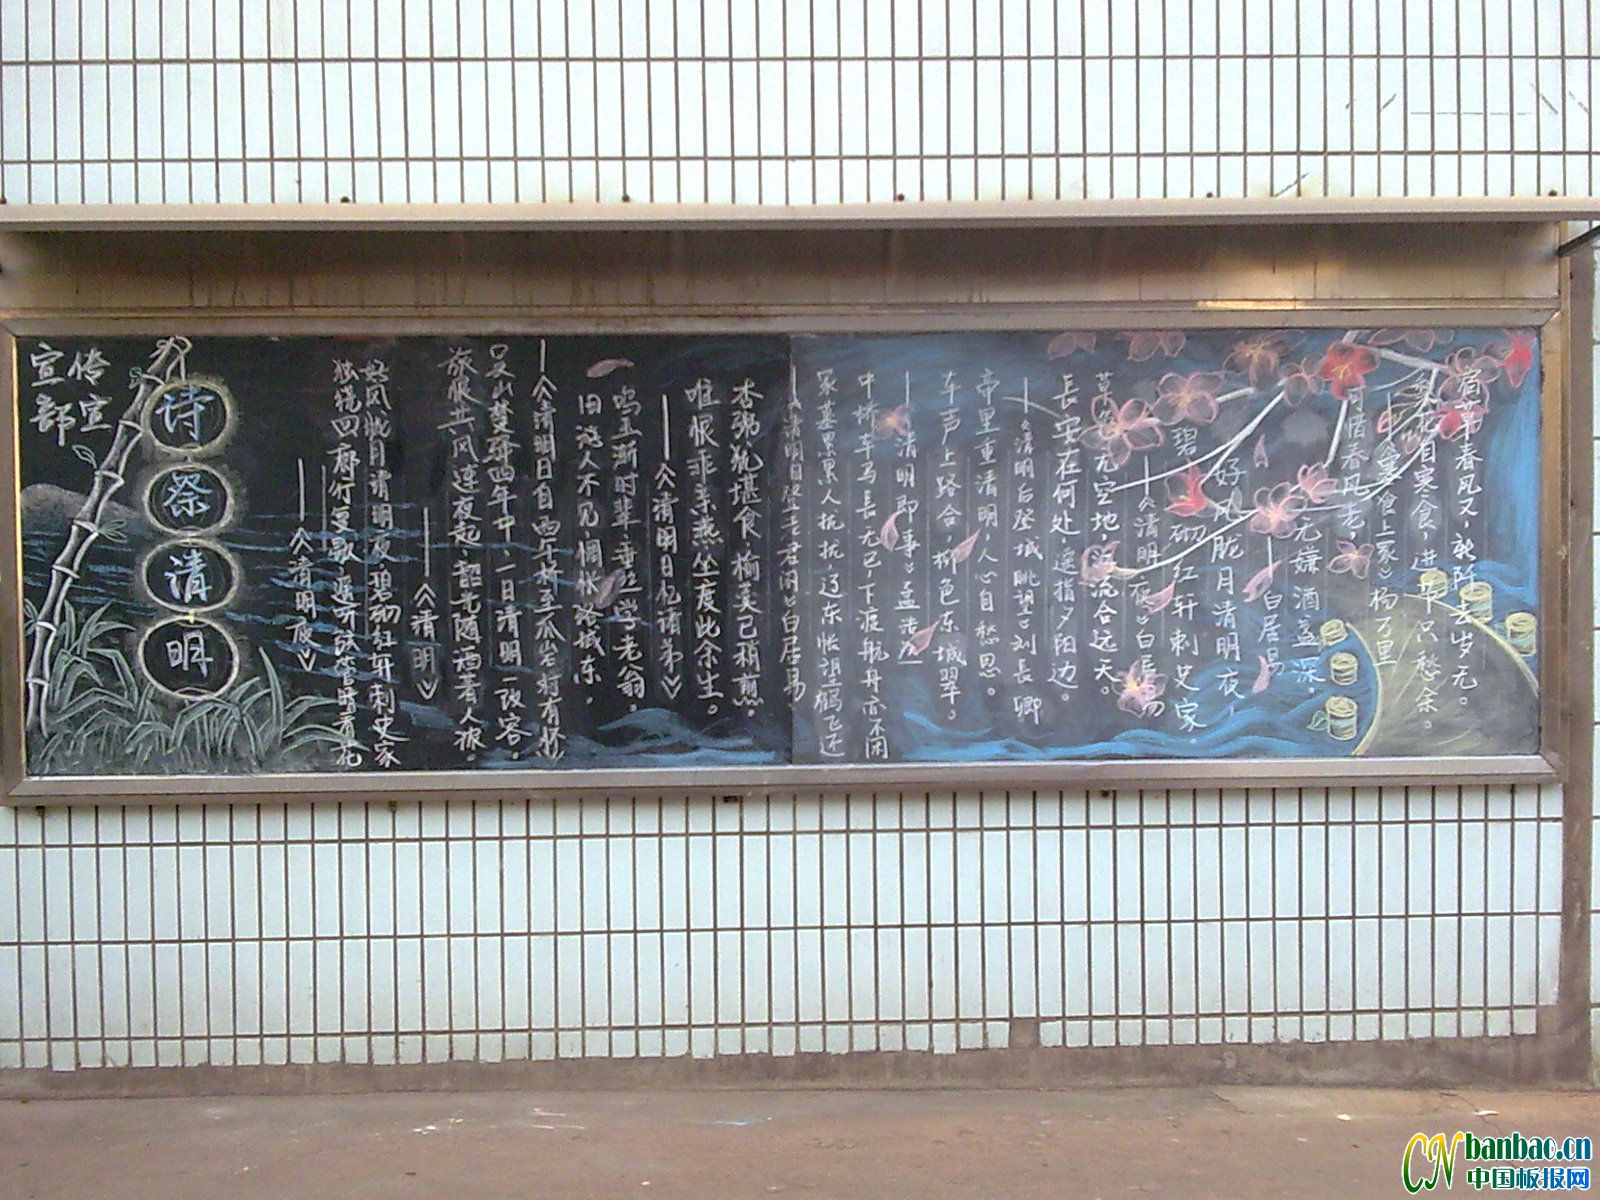 宿草春风又，新阡去岁无。
梨花自寒食，进节只愁余。
——《寒食上冢》杨万里
月惜春风老，
无嫌酒盏深。
——白居易
好风胧月清明夜，
碧砌红轩刺史家。
——《清明夜》白居易
草色无空地，江流合远天。
長安在何处，遥指夕阳边。
——《清明后登城眺望》刘長卿
帝里重清明，人心自愁思。
车声上路合，柳色东城翠。
——清明即事》孟浩然
中桥车马長无已，下渡航舟亦不闲
冢墓累累人扰扰，辽东怅望鹤飞还
——《清明日登老君阁》白居易
杏粥犹堪食，榆羹已稍煎。
唯恨乖亲燕，坐度此余生。
——《清明日忆诸弟》
鸣玉渐时辈，垂丝学老翁。
旧游人不见，惆怅洛城东。
——《清明日自西午桥至瓜岩村有怀
吴山楚驿四年中，一日清明一改容。
旅恨共风连夜起，韶光随酒著人浓
——《清明》
好风胧月清明夜，碧砌红轩刺史家
独绕回廊行复歇，遥听弦管暗看花
——《清明夜》
诗祭清明
宣传部
宣
CN banbao.cn
中国板报网